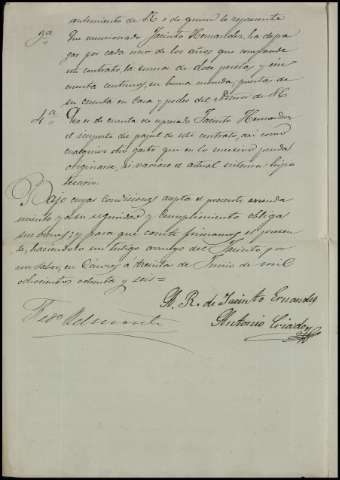 3ª
mencionado Jacinto Hernandez, ha de pa-
gar por cada uno de los años que comprende
este contrato, la suma de doce pesetas y cin-
cuenta centimos, en buena moneda, puestas de
su cuenta en casa y poder del Señor de
4ª Será de cuenta del expresado Jacinto Hernandez
el importe del papel de este contrato, así como
cualquier otro gasto que en lo sucesivo pueda
originarse, si variase el actual sistema hipo-
tecario.
Bajo cuyas condiciones acepta el presente arrenda-
miento y a su seguridad y cumplimiento obliga
sus bienes; y para que conste firmamos el presen-
te, haciéndolo un testigo a ruego del Jacinto por
no saber, en Cáceres a treinta de Junio de mil
ochocientos ochenta y seis =
A. R. de Jacinto Ernandez
Antonio Criado